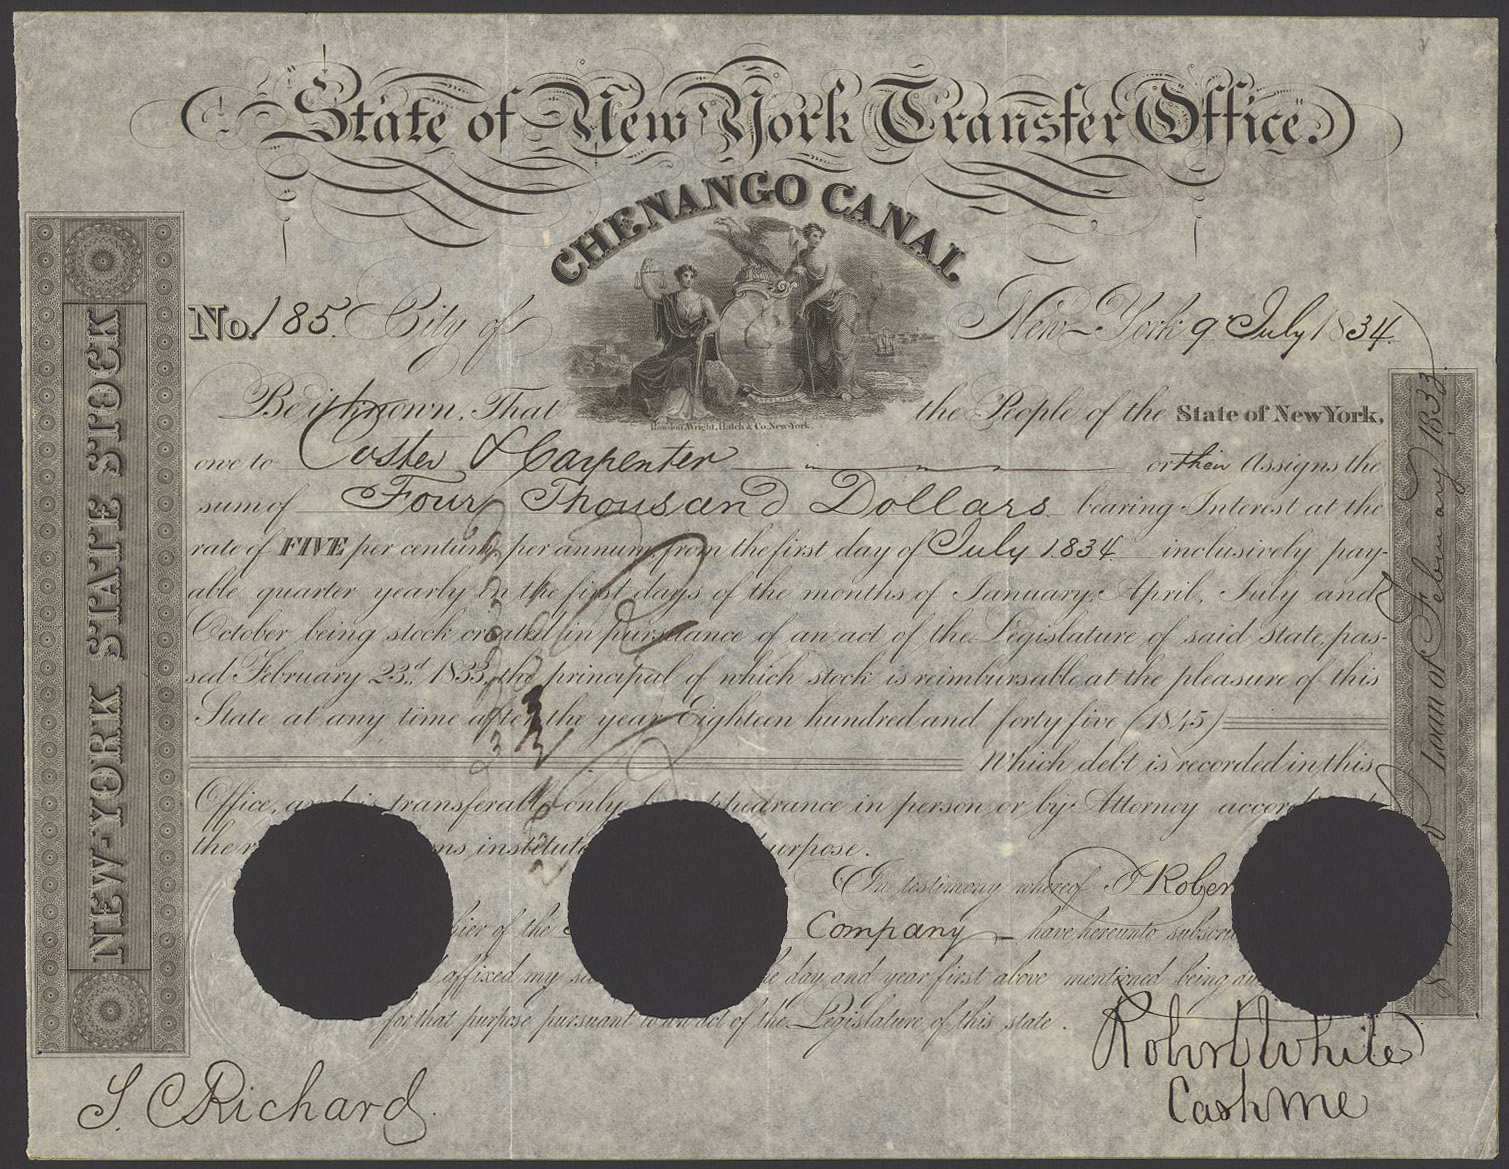 State of New York Transfer Office.
CHENANGO CANAL
No. 185. City of New-York 9 July 1834.
Be it known, That the People of the State of New York,
owe to Coster & Carpenter or their Assigns the
sum of Four Thousand Dollars bearing Interest at the
rate of FIVE per centum per annum from the first day of July 1834 inclusively pay-
able quarter yearly on the first days of the months of January, April, July and
October being stock created in pursuance of an act of the Legislature of said state, pas-
sed February 23d. 1833, the principal of which stock is reimbursable at the pleasure of this
State at any time after the year Eighteen hundred and forty five (1845)
Which debt is recorded in this
Office, and is transferable only by appearance in person or by Attorney accord
the ns institut urpose.
In testimony whereof I Rober
hier of the Company have hereunto subscri
affixed my se e day and year first above mentioned being au
for that purpose pursuant to an act of the Legislature of this state.
Robert White
S. C. Richard
NEW-YORK STATE STOCK
Loan of February 1833
Rawdon, Wright, Hatch & Co. New-York.